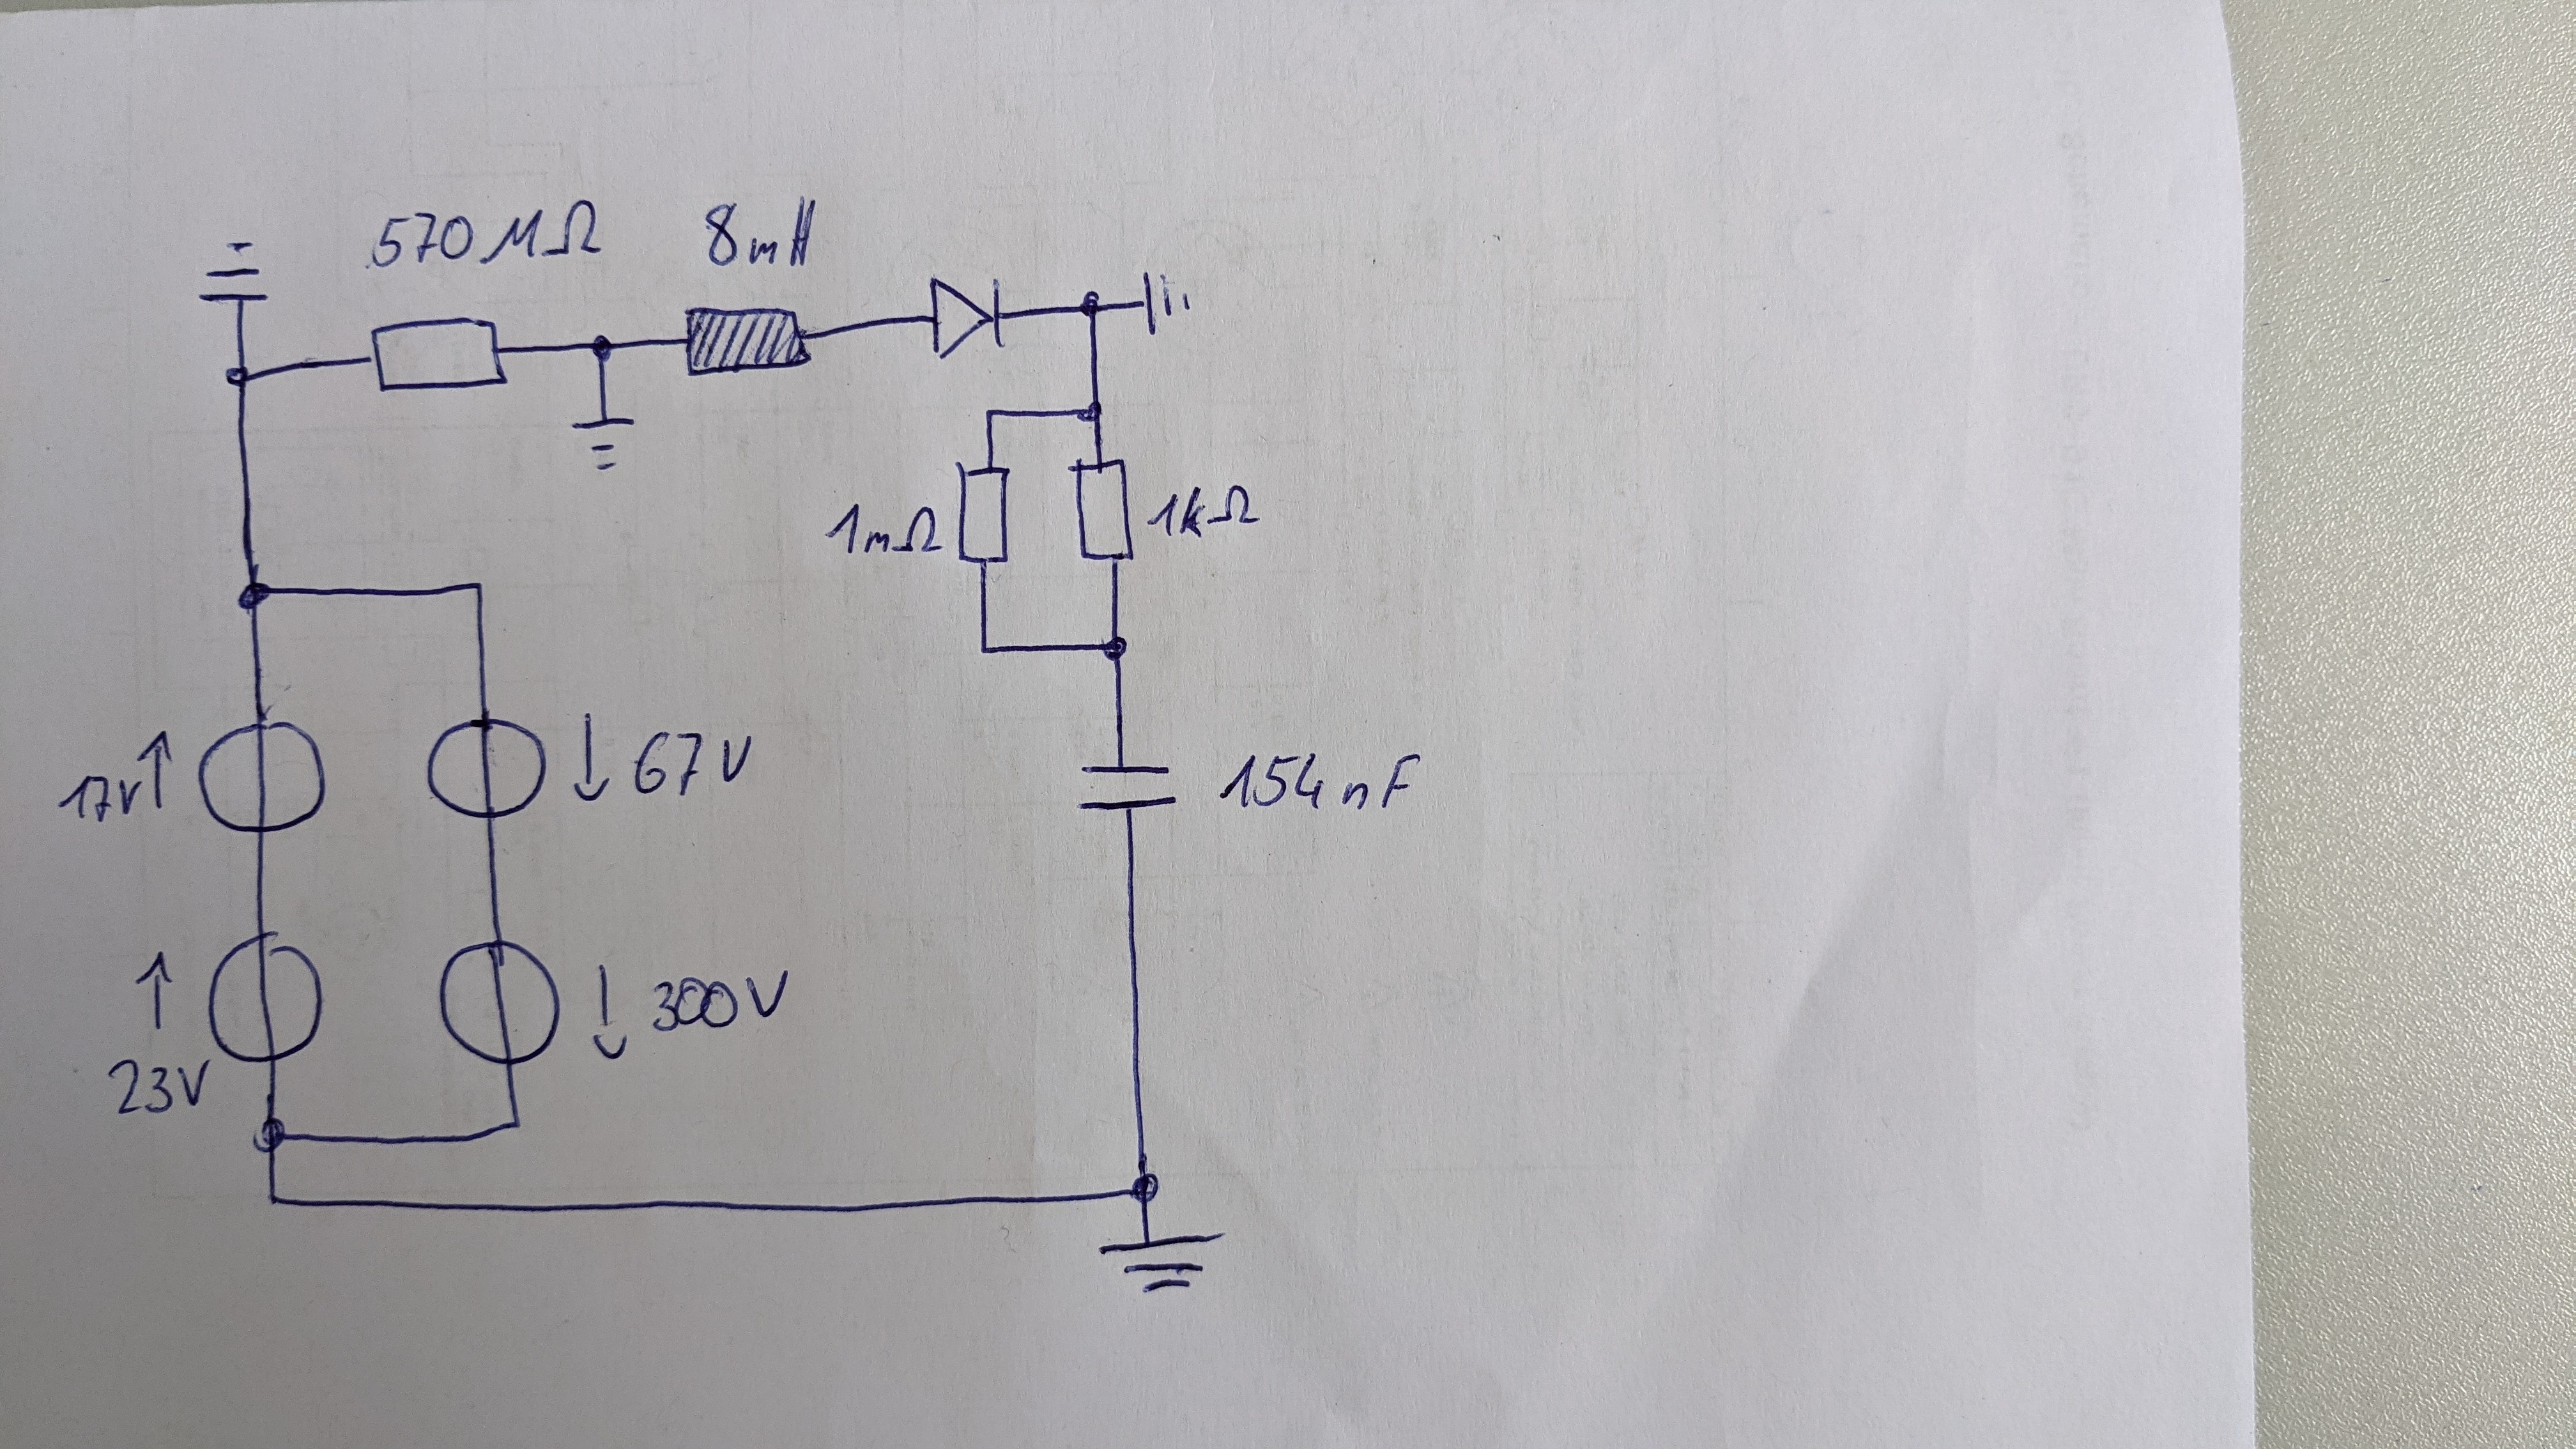 570 MΩ 8mH
1mΩ 1kΩ
17V 67V 154nF
23V 300V